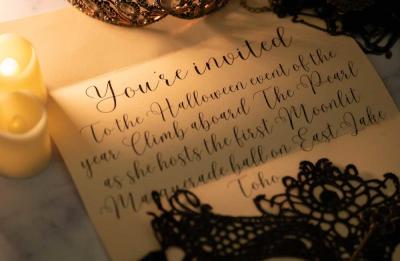 You're invited
To the Halloween event of the
year Climb aboard The Pearl
as she hosts the first Moonlit
Masquerade ball on East Lake
Toho